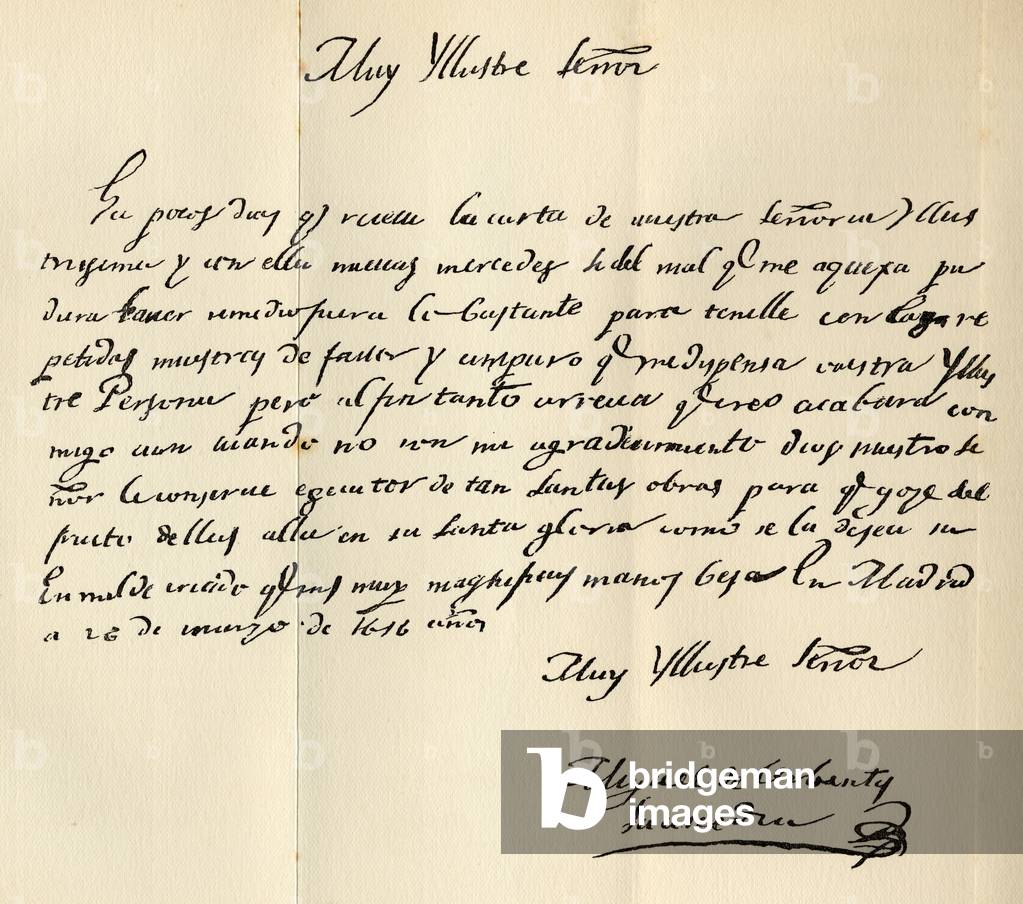 Muy Yllustre señor
Ha pocos dias q̃ reciui la carta de vuestra señoria Yllus
trisima y con ella nueuas mercedes si del mal q̃ me aquexa pu
diera hauer remedio fuera lo bastante para tenelle con las re
petidas muestras de fauor y amparo q̃ me dispensa vuestra Yllus
tre Persona pero al fin tanto arrecia q̃ creo acabara con
migo aun quando no con mi agradecimiento dios nuestro se
ñor le conserue egecutor de tan santas obras para q̃ goze del
fruto dellas alla en su santa gloria como se la desea su
humilde criado q̃ sus muy magnificas manos besa En Madrid
a 26 de março de 1616 años
Muy Yllustre señor
Miguel de Cerbantes
Saauedra
bridgeman
images